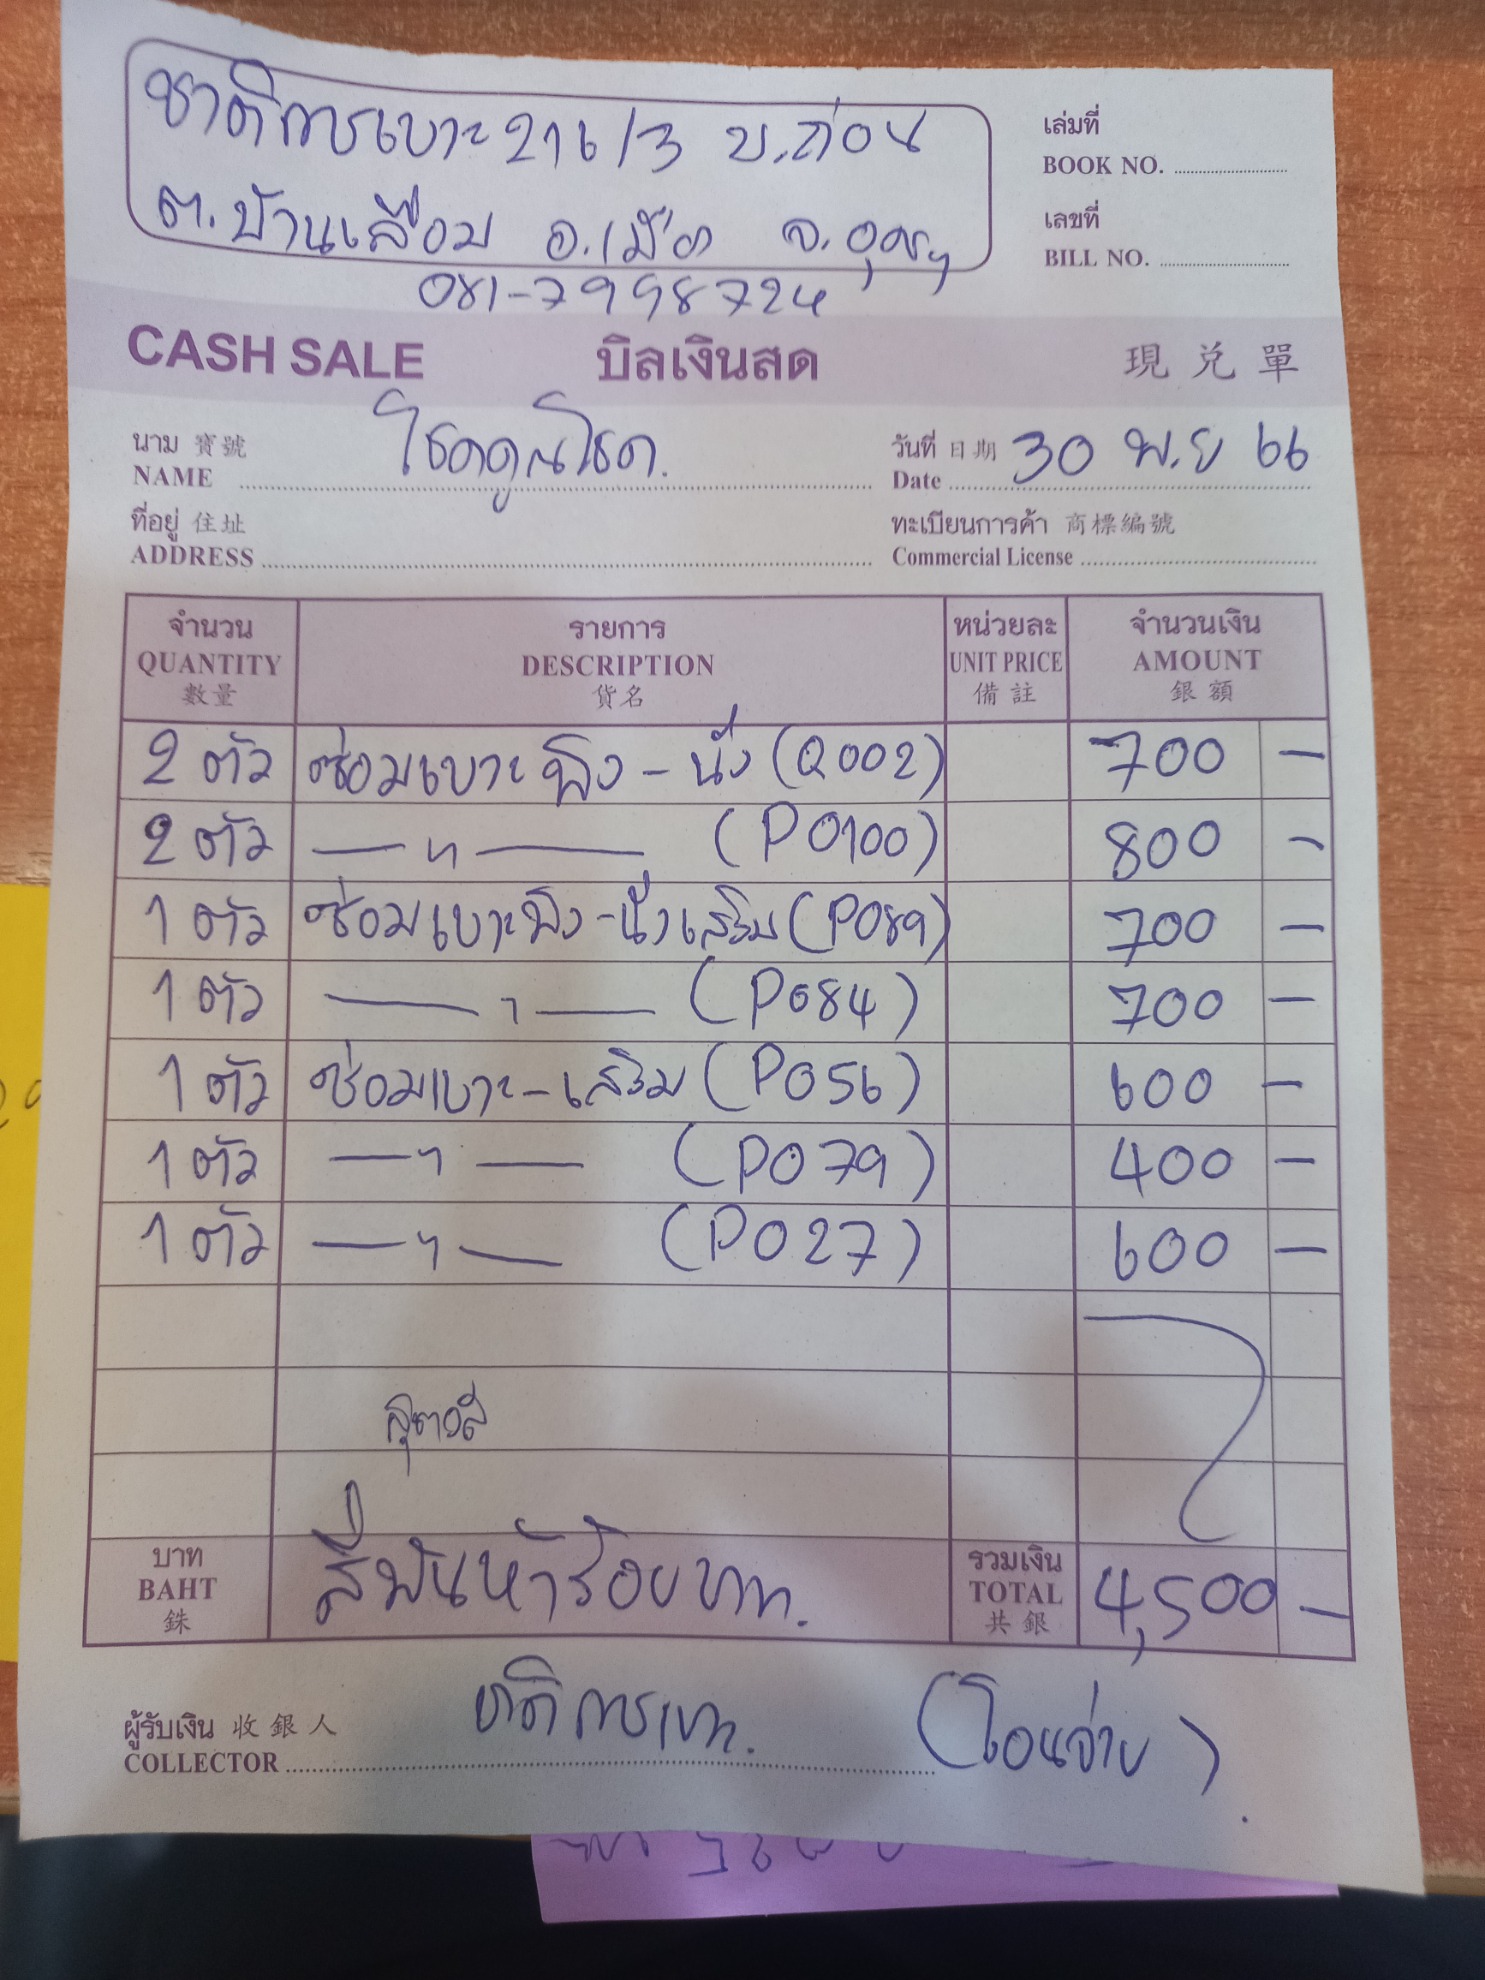 ชาติการเบาะ 216/3 บ.ถ่อน
ต.บ้านเลื่อม อ.เมือง จ.อุดรฯ
081-7998724
เล่มที่
BOOK NO.
เลขที่
BILL NO.
CASH SALE บิลเงินสด 現兌單
นาม 寶號 โชคคูณโชค. วันที่ 日期 30 พ.ย 66
NAME Date
ที่อยู่ 住址 ทะเบียนการค้า 商標編號
ADDRESS Commercial License
จำนวน รายการ หน่วยละ จำนวนเงิน
QUANTITY DESCRIPTION UNIT PRICE AMOUNT
數量 貨名 備註 銀額
2 ตัว ซ่อมเบาะพิง - นั่ง (Q002) 700 -
2 ตัว — " — (P0100) 800 -
1 ตัว ซ่อมเบาะพิง - นั่งเสริม (P089) 700 -
1 ตัว — " — (P084) 700 -
1 ตัว ซ่อมเบาะ - เสริม (P056) 600 -
1 ตัว — " — (P079) 400 -
1 ตัว — " — (P027) 600 -
บาท รวมเงิน
BAHT สี่พันห้าร้อยบาท. TOTAL 4,500 -
銖 共銀
ผู้รับเงิน 收銀人 ชาติการเบาะ. (โอนจ่าย)
COLLECTOR